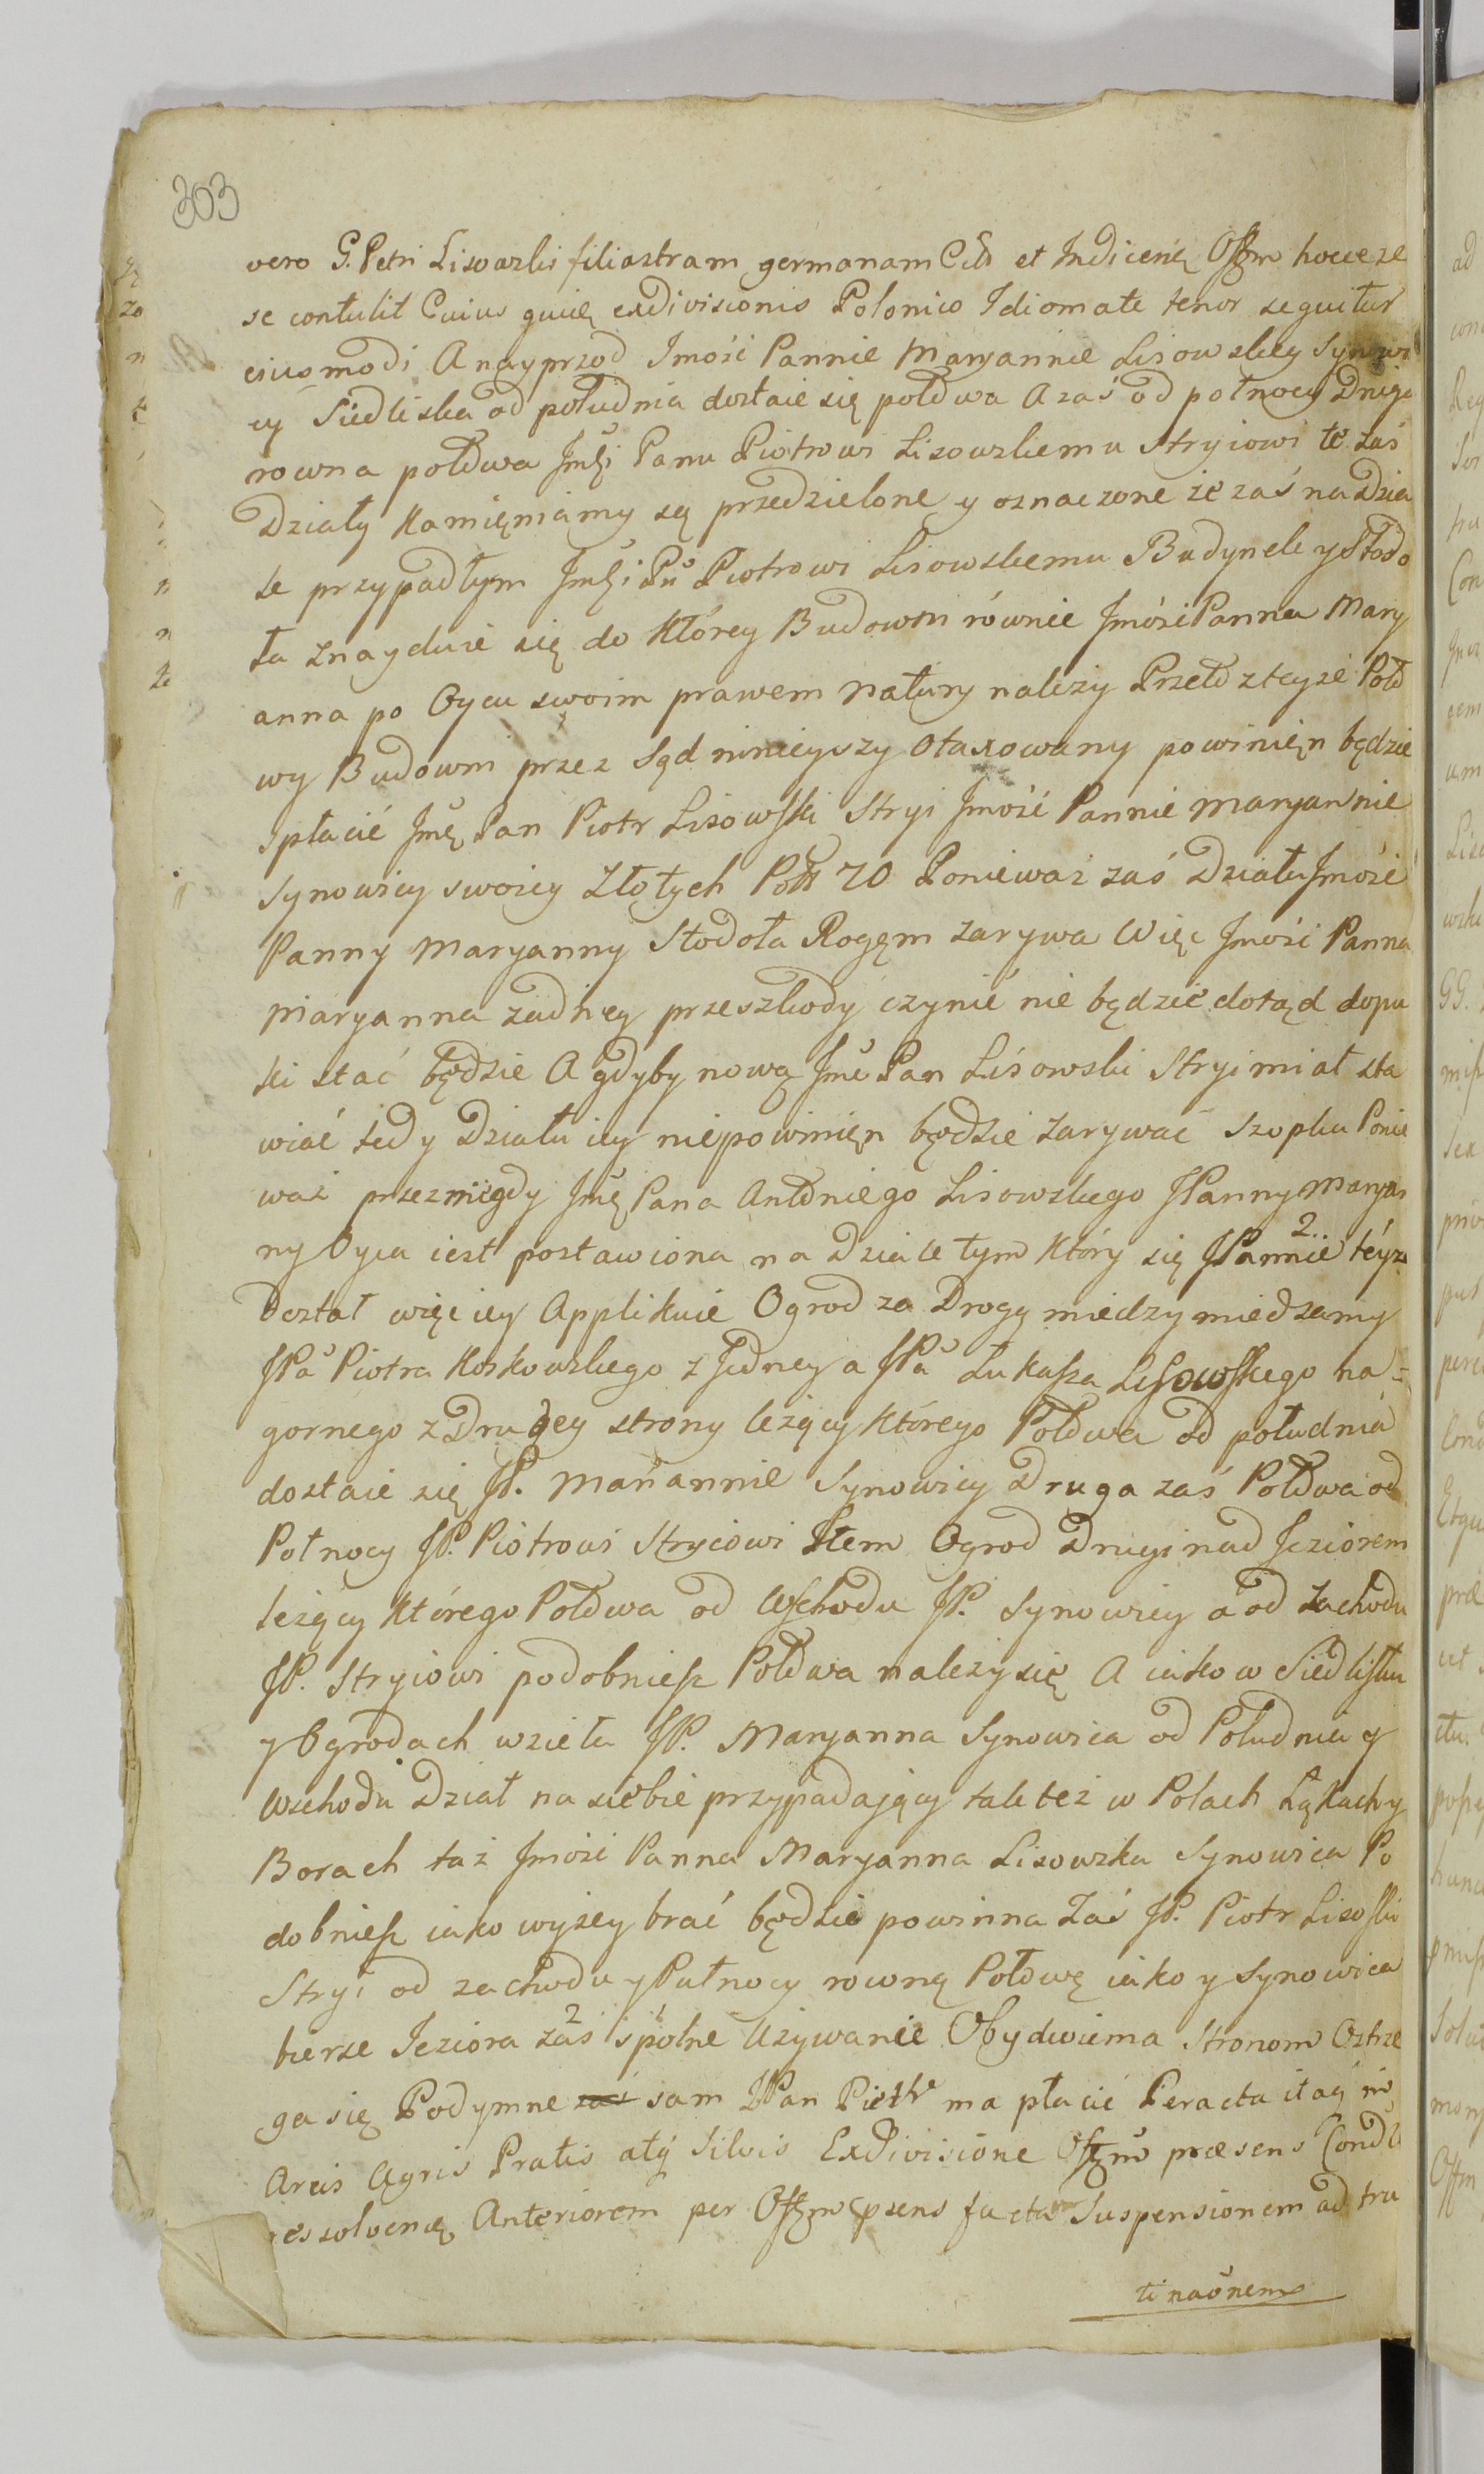 303
vero G. Petri Lisowzki filiastram germanam Cůs et Indicenę Offm hocce ze
se contulit Cuius quię exdivisionis Polonico Idiomate tenor sequitur
eiusmodi A nayprzod Jmości Pannie Maryannie Lisowskiey Synowi
cy Siedliska od południa dostaie się połowa A zaś od połnocy Druga
rowna połowa Jmści Panu Piotrowi Lisowzkiemu Stryiowi te zaś
Działy kamięniąmy są przedzielone y oznaczone że zaś na Dzia
le przypadłym Jmści Pů Piotrowi Lisowskiemu Budynek y Stodo
ła znayduie się do Którey Budowni równie Jmości Panna Mary
anna po Oycu swoim prawem natury należy Przeto z teyże Poło
wy Budowni przez Sąd ninieyszy Otaxowany powinięn będzie
Spłacić Jmę Pan Piotr Lisowski Stryi Jmość Pannie Maryannie
Synowicy swoiey Złotych Pols 70 Ponieważ zaś Działu Jmości
Panny Maryanny Stodoła Rogęm zarywa Więc Jmości Panna
Maryanna żadney przeszkody czynić nie będzie dotąd dopu
ki stać będzie A gdyby nową Jmć Pan Lisowski Stryi miał sta
wiać tedy Działu iey niepowinięn będzie zarywać Szopka Ponie
waż przez niegdy Jmę Pana Antoniego Lisowskiego JPanny Maryan
ny Oyca iest postawiona na Dziale tym Który się JPannie teyże
Dostał więc iey Applikuie Ogrod za Drogą miedzy miedzamy
JPa Piotra Koskowskiego z Jedney a JPa Łukasza Lisowskiego na=
gornego z Drugey strony leżący Którego Połowa od południa
dostaie się JP. Maríannie Synowicy Druga zaś Połowa od
Połnocy JP. Piotrowi Stryiowi Item Ogrod Drugi nad Jeziorem
leżący Którego Połowa od Wschodu JP. Synowicy a od Zachodu
JP. Stryiowi podobniesz Połowa należy się A iako w Siedlisku
y Ogrodach wzieła JP. Maryanna Synowica od Południa y
Wschodu Dział na siebie przypadający tak też w Polach Łąkach y
Borach taż Jmości Panna Maryanna Lisowzka Synowica Po
dobniesz iako wyżey brać będzie powinna Zaś JP. Piotr Lisoski
Stryi od zachodu y Pułnocy rowną Połowę iako y Synowica
bierze Jeziora zaś spolne Używanie Obydwiema Stronom Ostrze
ga się Podymne zaś sam JPan Piotr ma płacić Peracta itaq in
Areis Agris Pratis atq Silvis Exdivisione Offm præsens Condů
essolvenę Anteriorem per Offm psens factam Suspensionem ad tru
tinaõnem